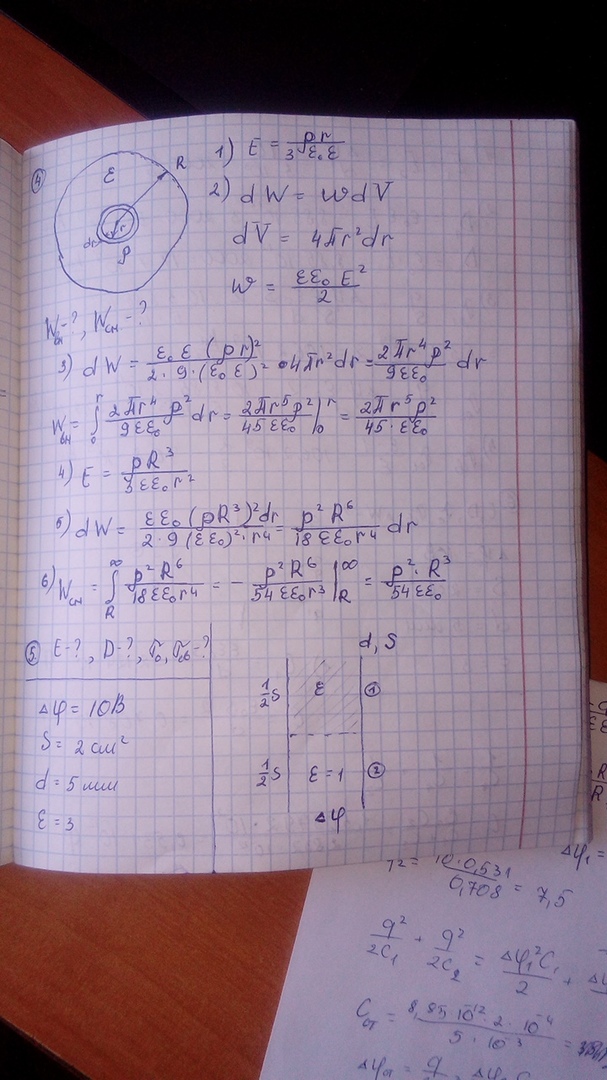 ④
ε
R
r
dr
ρ
1) E = ρr / 3ε₀ε
2) dW = wdV
dV = 4πr²dr
w = εε₀E² / 2
Wвн-?, Wсн-?
3) dW = ε₀ε(ρr)² / 2·9·(ε₀ε)² · 4πr²dr = 2πr⁴ρ² / 9εε₀ dr
Wвн = ∫₀ʳ 2πr⁴ρ² / 9εε₀ dr = 2πr⁵ρ² / 45εε₀ |₀ʳ = 2πr⁵ρ² / 45·εε₀
4) E = ρR³ / 3εε₀r²
5) dW = εε₀(ρR³)²dr / 2·9(εε₀)²·r⁴ = ρ²R⁶ / 18εε₀r⁴ dr
6) Wсн = ∫_R^∞ ρ²R⁶ / 18εε₀r⁴ = - ρ²R⁶ / 54εε₀r³ |_R^∞ = ρ²·R³ / 54εε₀
⑤ E-?, D-?, σ₀, σсв-?
Δφ = 10В
S = 2 см²
d = 5 мм
ε = 3
d, S
½S ε ①
½S ε=1 ②
Δφ
= 10·0,531 / 0,708 = 7,5
Δφ₁ =
q² / 2C₁ + q² / 2C₂ = Δφ₁²C₁ / 2 +
= 8,85·10⁻¹²·2·10⁻⁴ / 5·10⁻³ =